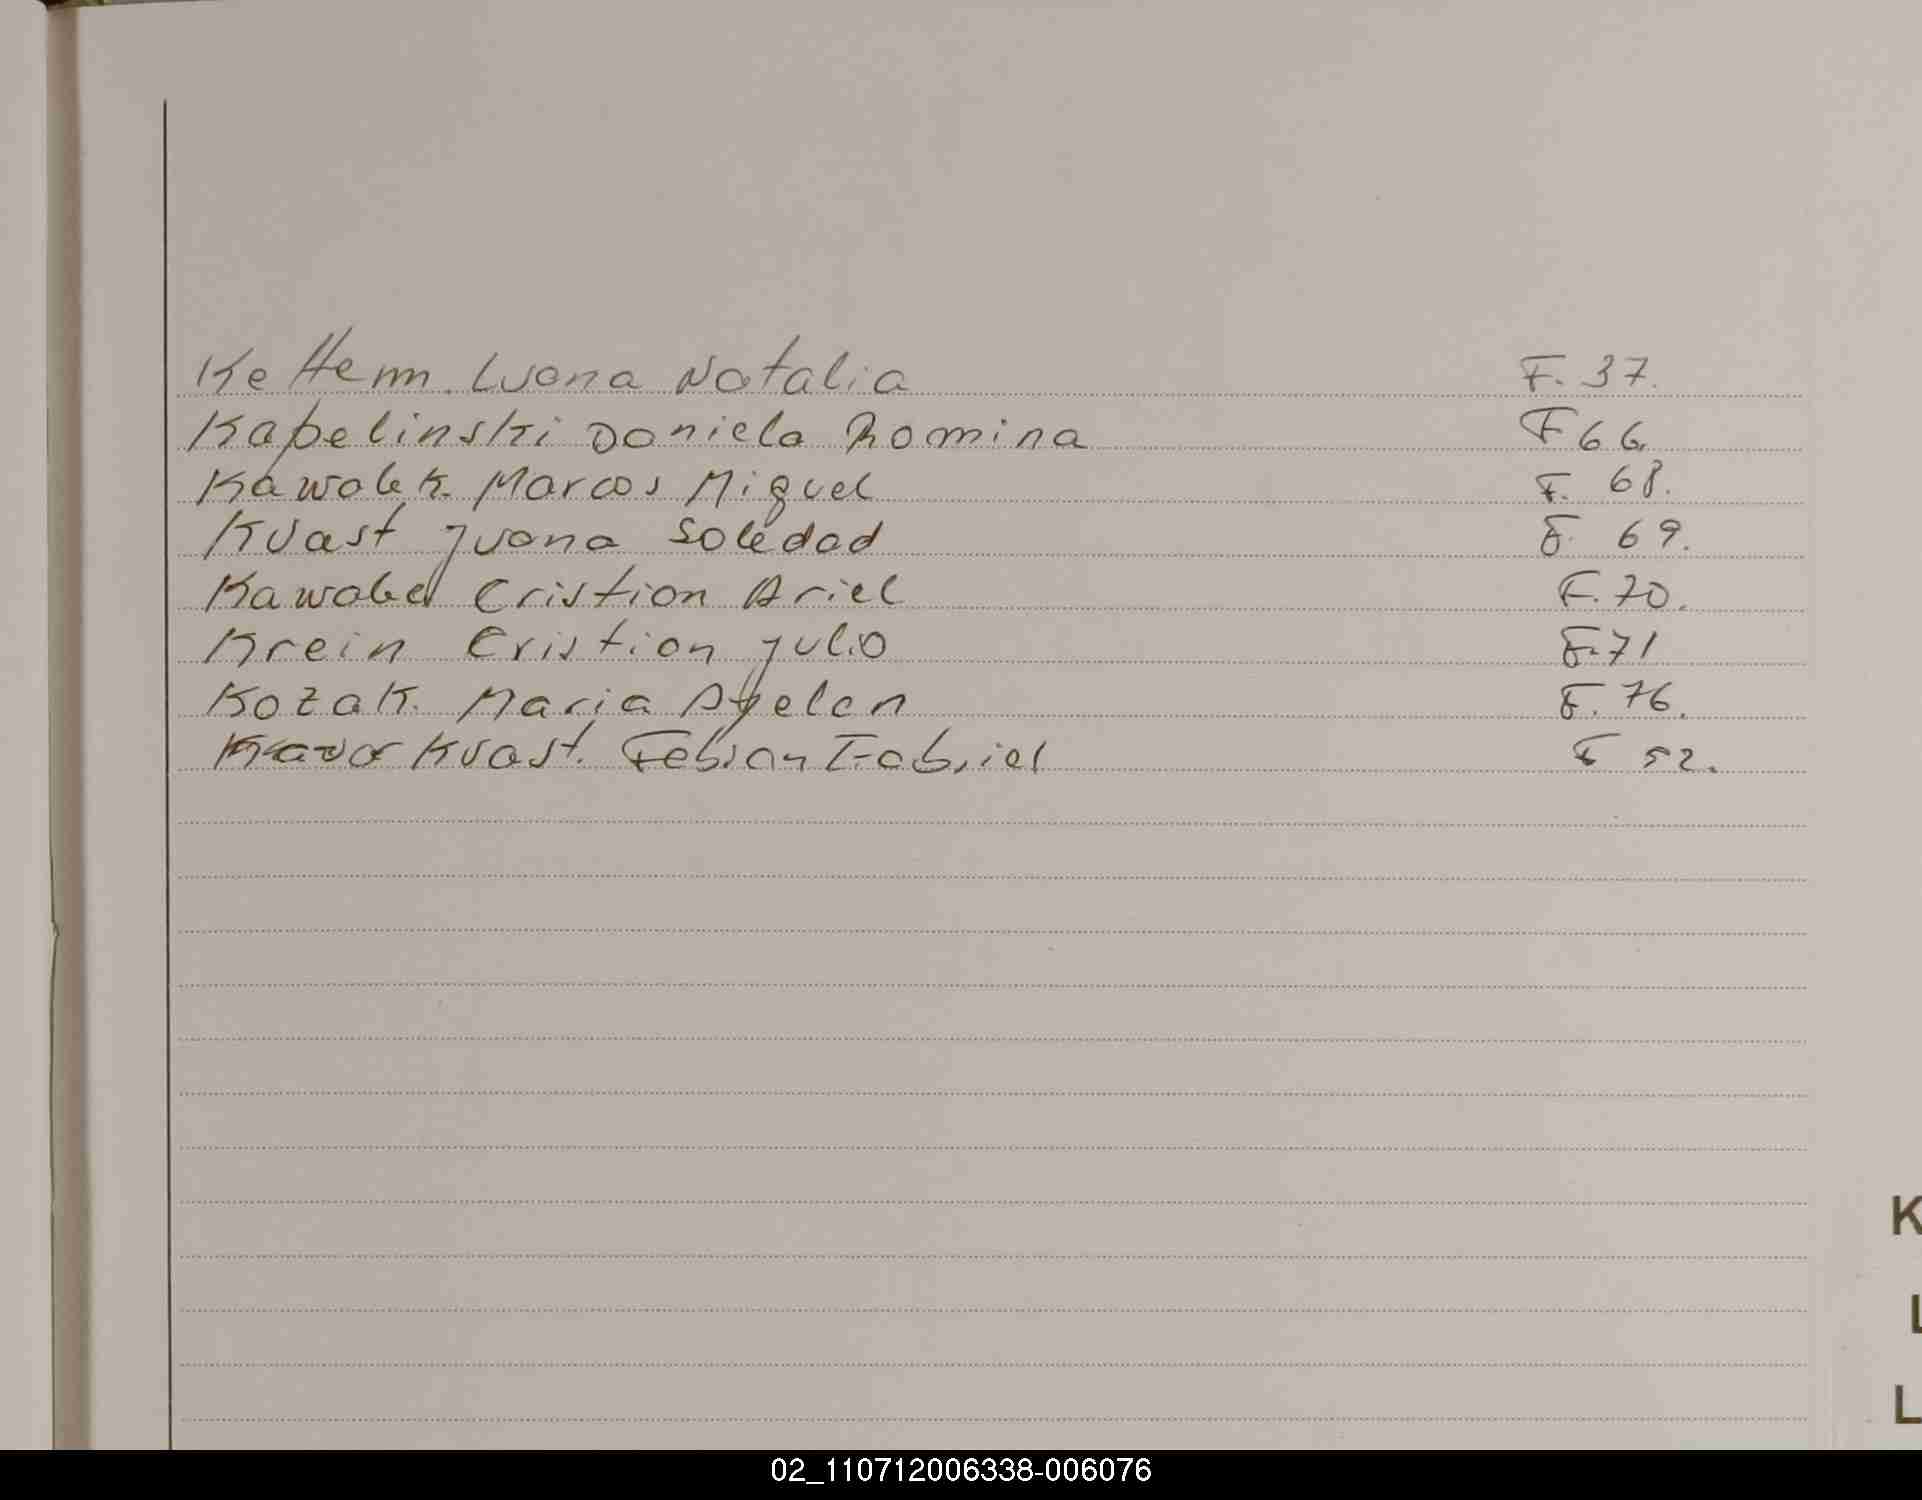 Kettemn. Luana Natalia F. 37.
Kapelinski Daniela Romina F 66.
Kawalek. Marcos Miguel F. 68.
Kuast Juana Soledad F. 69.
Kawalek Cristian Ariel F. 70.
Krein Cristian Julio F. 71
Kozak. Maria Ayelen F. 76.
Kuast. Fabian Gabriel F 52.
K
L
L
02_110712006338-006076